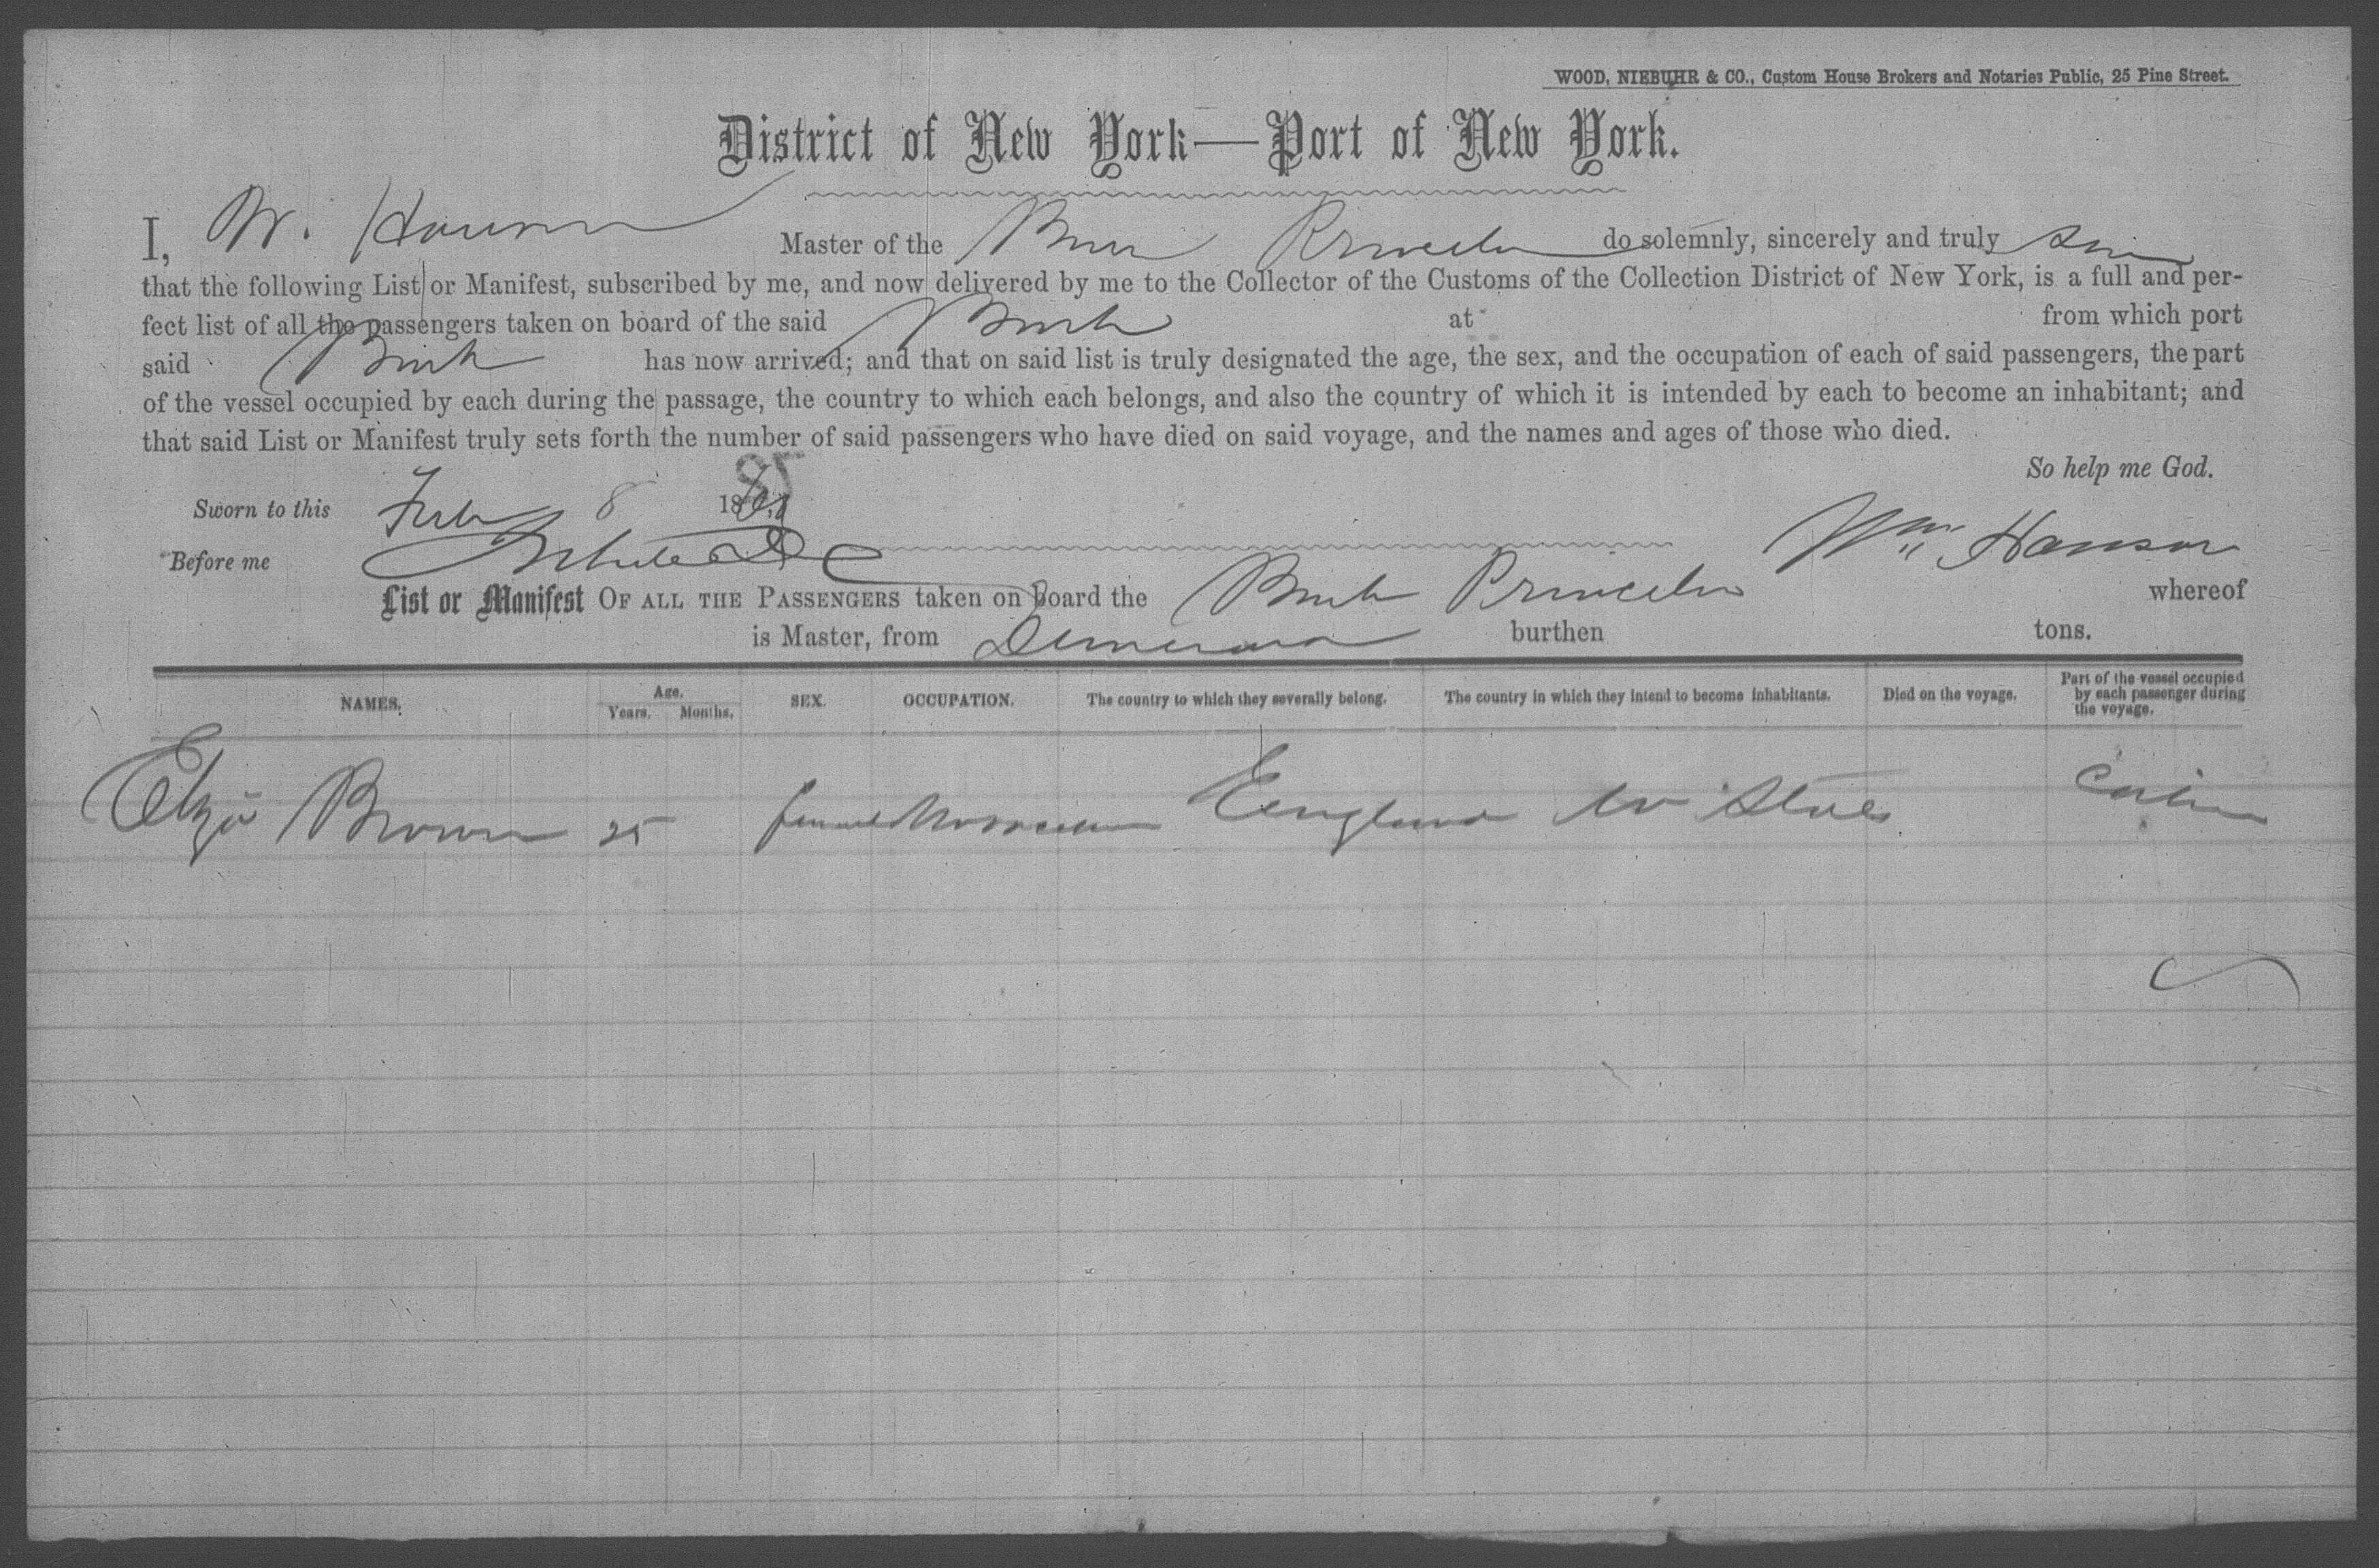 WOOD, NIEBUHR & CO., Custom House Brokers and Notaries Public, 25 Pine Street.
District of New York—Port of New York.
I, W. Hanson Master of the Princeton do solemnly, sincerely and truly
that the following List or Manifest, subscribed by me, and now delivered by me to the Collector of the Customs of the Collection District of New York, is a full and per-
fect list of all the passengers taken on board of the said at from which port
said has now arrived; and that on said list is truly designated the age, the sex, and the occupation of each of said passengers, the part
of the vessel occupied by each during the passage, the country to which each belongs, and also the country of which it is intended by each to become an inhabitant; and
that said List or Manifest truly sets forth the number of said passengers who have died on said voyage, and the names and ages of those who died.
So help me God.
Sworn to this Feby 8 18
85
Before me Wm Hanson
List or Manifest OF ALL THE PASSENGERS taken on Board the Princeton whereof
is Master, from Demerara burthen tons.
NAMES. Age. Years. Months. SEX. OCCUPATION. The country to which they severally belong. The country in which they intend to become inhabitants. Died on the voyage. Part of the vessel occupied by each passenger during the voyage.
Eliza Brown 25 female England U States Cabin